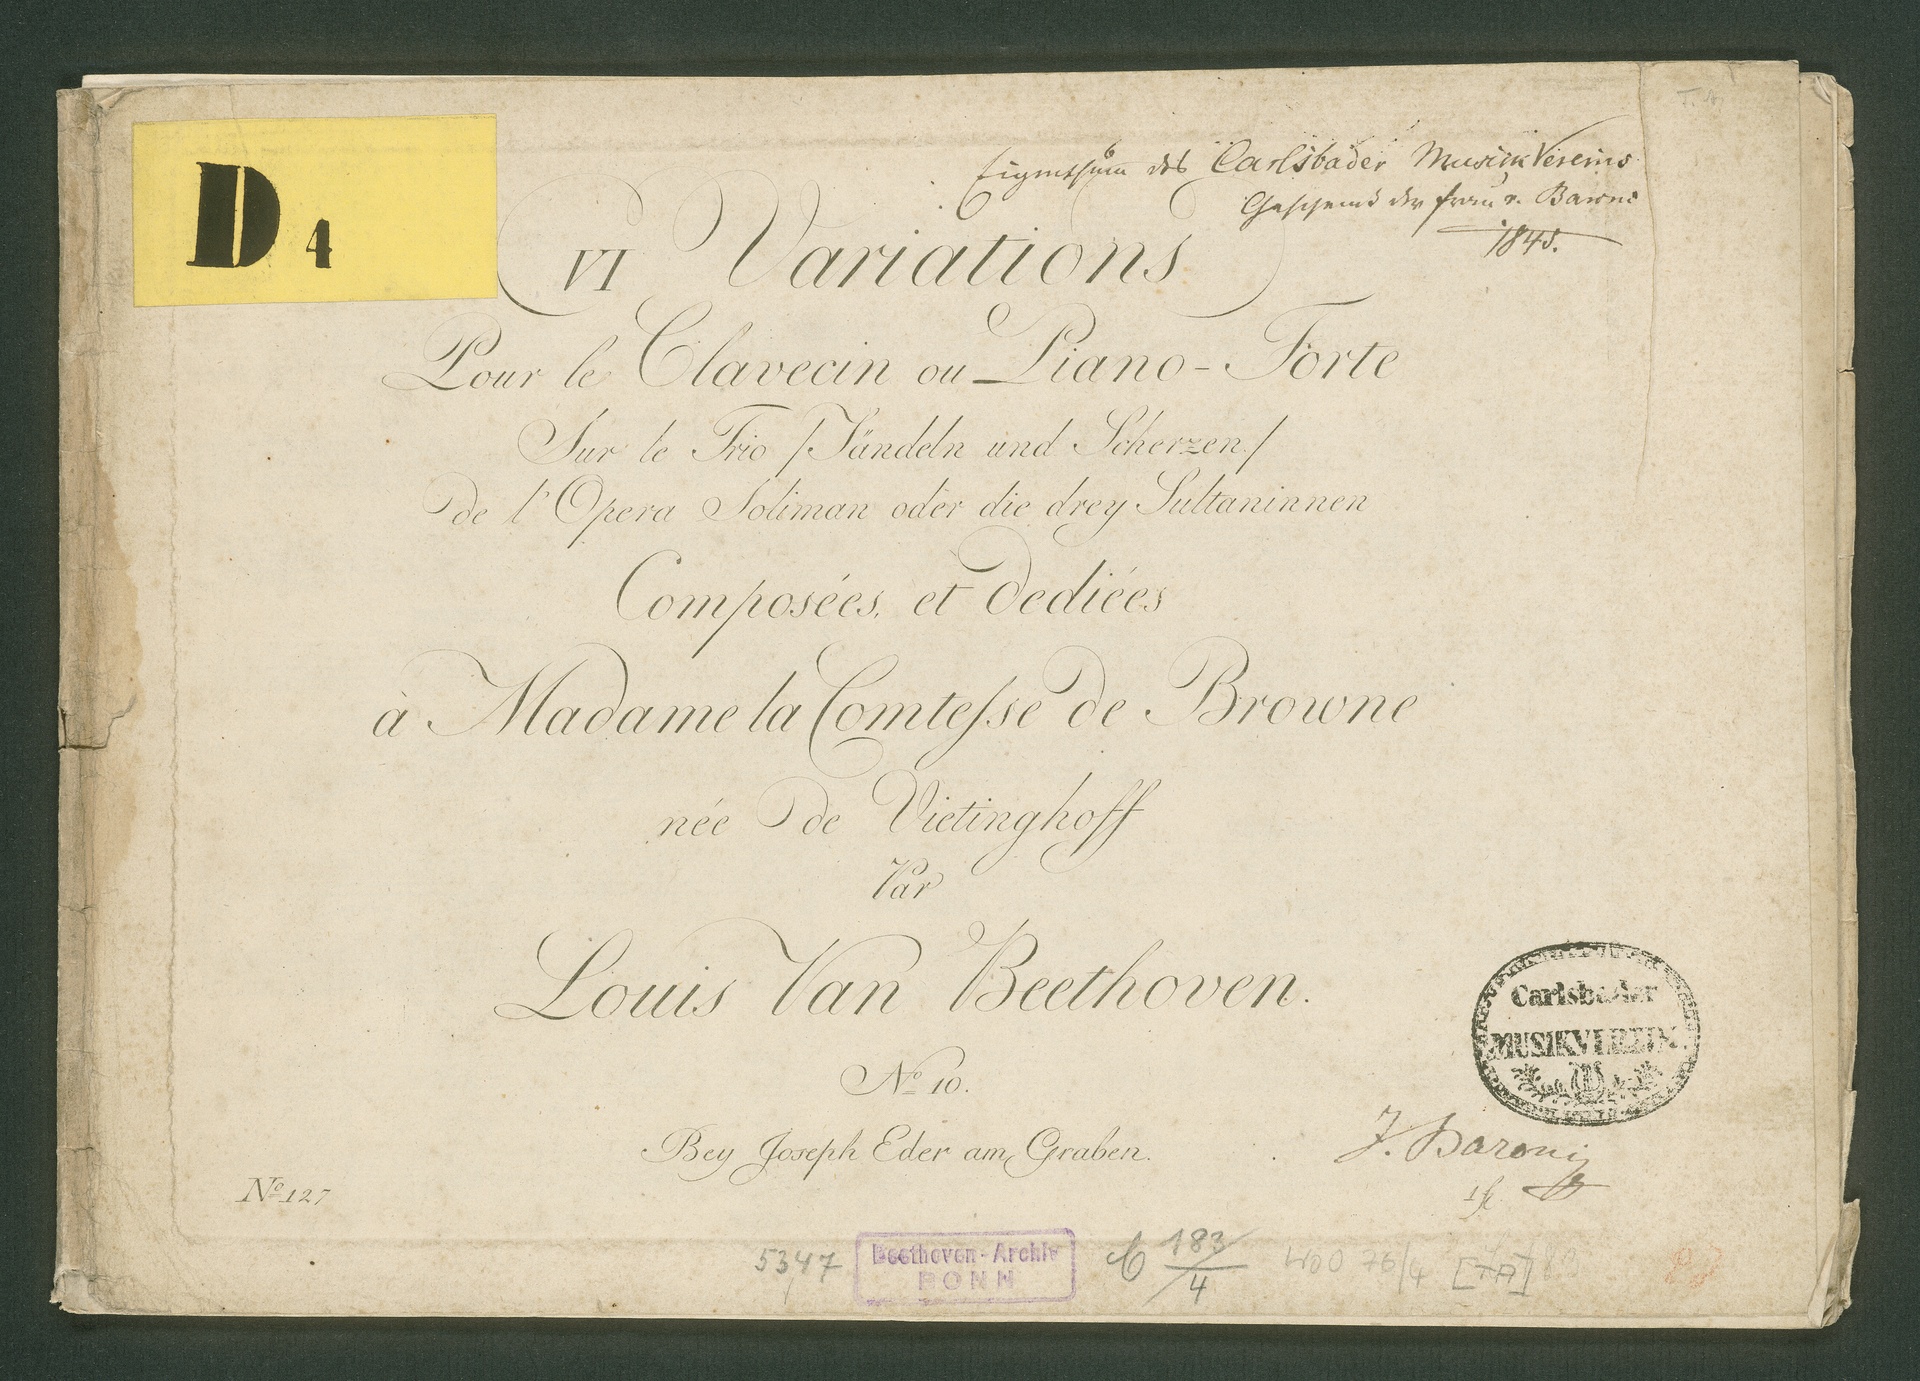 D 4
Eigenthum des Carlsbader Musik Vereins
Geschenk der Frau v. Baroni
1845.
VI Variations
Pour le Clavecin ou Piano-Forte
Sur le Trio /Tändeln und Scherzen/
de l'Opera Soliman oder die drey Sultaninnen
Composées, et dediées
à Madame la Comteſse de Browne
née de Vietinghoff
Par
Louis Van Beethoven.
No. 10.
Carlsbader
MUSIKVEREIN
Bey Joseph Eder am Graben.
J. Baroni
No. 127
5347
Beethoven-Archiv
BONN
C 183/4
WoO 76/4